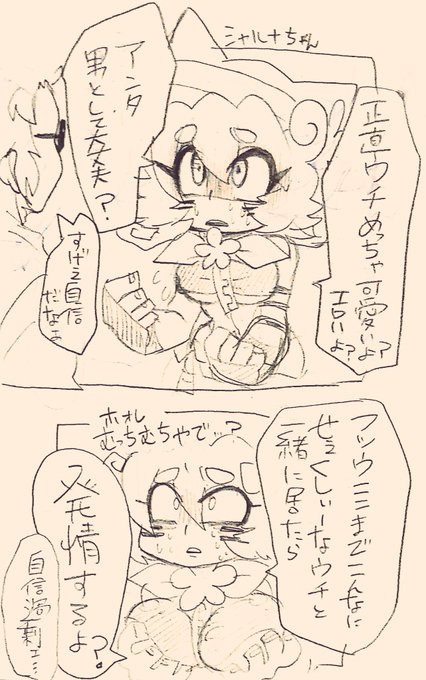 シャルナちゃん
正直ウチめっちゃ可愛いよ?
エロいよ?
アンタ
男として大丈夫?
すげえ自信
だなオ
フツウここまでこんなに
せくしぃーなウチと
一緒に居たら
ホレ
むっちむちやでッ?
発情するよ?
自信過剰ェ…